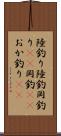 陸釣り陸釣岡釣
り岡釣
おか釣り